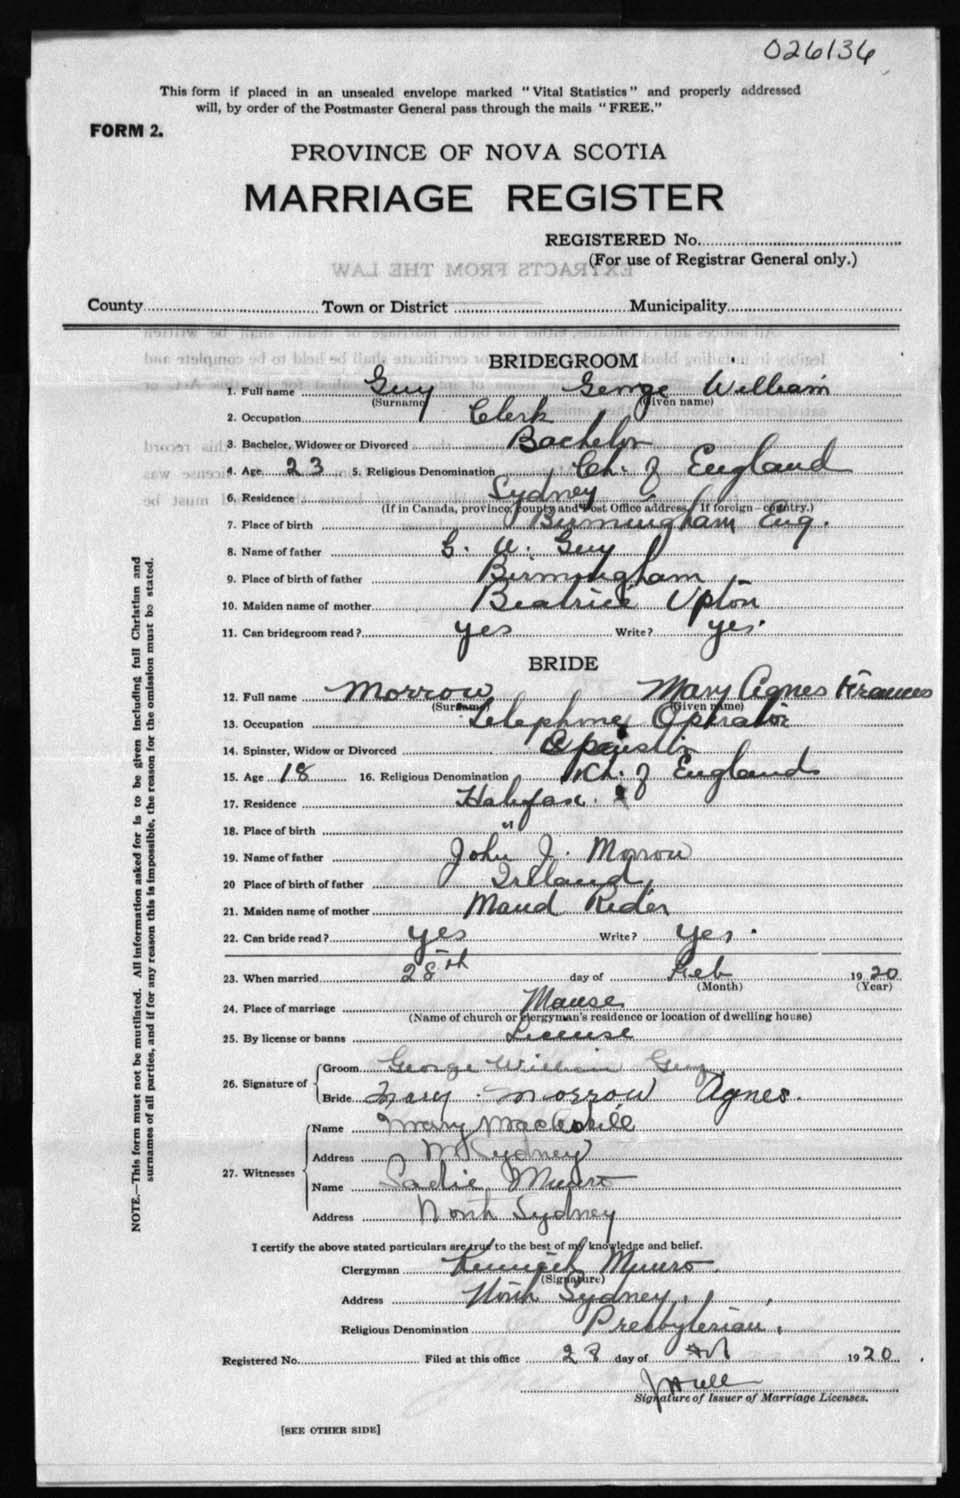 026136
This form if placed in an unsealed envelope marked "Vital Statistics" and properly addressed
will, by order of the Postmaster General pass through the mails "FREE."
FORM 2.
PROVINCE OF NOVA SCOTIA
MARRIAGE REGISTER
REGISTERED No.
(For use of Registrar General only.)
EXTRACTS FROM THE LAW
County Town or District Municipality
BRIDEGROOM
1. Full name Guy George William
(Surname) (Given name)
2. Occupation Clerk
3. Bachelor, Widower or Divorced Bachelor
4. Age 23 5. Religious Denomination Ch. of England
6. Residence Sydney
(If in Canada, province, county and Post Office address. If foreign—country.)
7. Place of birth Birmingham Eng.
8. Name of father G. W. Guy
9. Place of birth of father Birmingham
10. Maiden name of mother Beatrice Upton
11. Can bridegroom read? yes Write? yes.
BRIDE
12. Full name Morrow Mary Agnes Frances
(Surname) (Given name)
13. Occupation Telephone Operator
14. Spinster, Widow or Divorced Spinster
15. Age 18 16. Religious Denomination Ch. of England
17. Residence Halifax.
18. Place of birth "
19. Name of father John J. Morrow
20 Place of birth of father Ireland
21. Maiden name of mother Maud Rider
22. Can bride read? yes Write? yes.
23. When married 28th day of Feb 1920
(Month) (Year)
24. Place of marriage Manse
(Name of church or clergyman's residence or location of dwelling house)
25. By license or banns License
26. Signature of
Groom George William Guy
Bride Mary Morrow Agnes.
27. Witnesses
Name Mary MacAskill
Address N Sydney
Name Sadie Munro
Address North Sydney
I certify the above stated particulars are true to the best of my knowledge and belief.
Clergyman Kenneth Munro
(Signature)
Address North Sydney,
Religious Denomination Presbyterian,
Registered No. Filed at this office 28 day of 1920
Signature of Issuer of Marriage Licenses.
[SEE OTHER SIDE]
NOTE.—This form must not be mutilated. All information asked for is to be given including full Christian and
surnames of all parties, and if for any reason this is impossible, the reason for the omission must be stated.